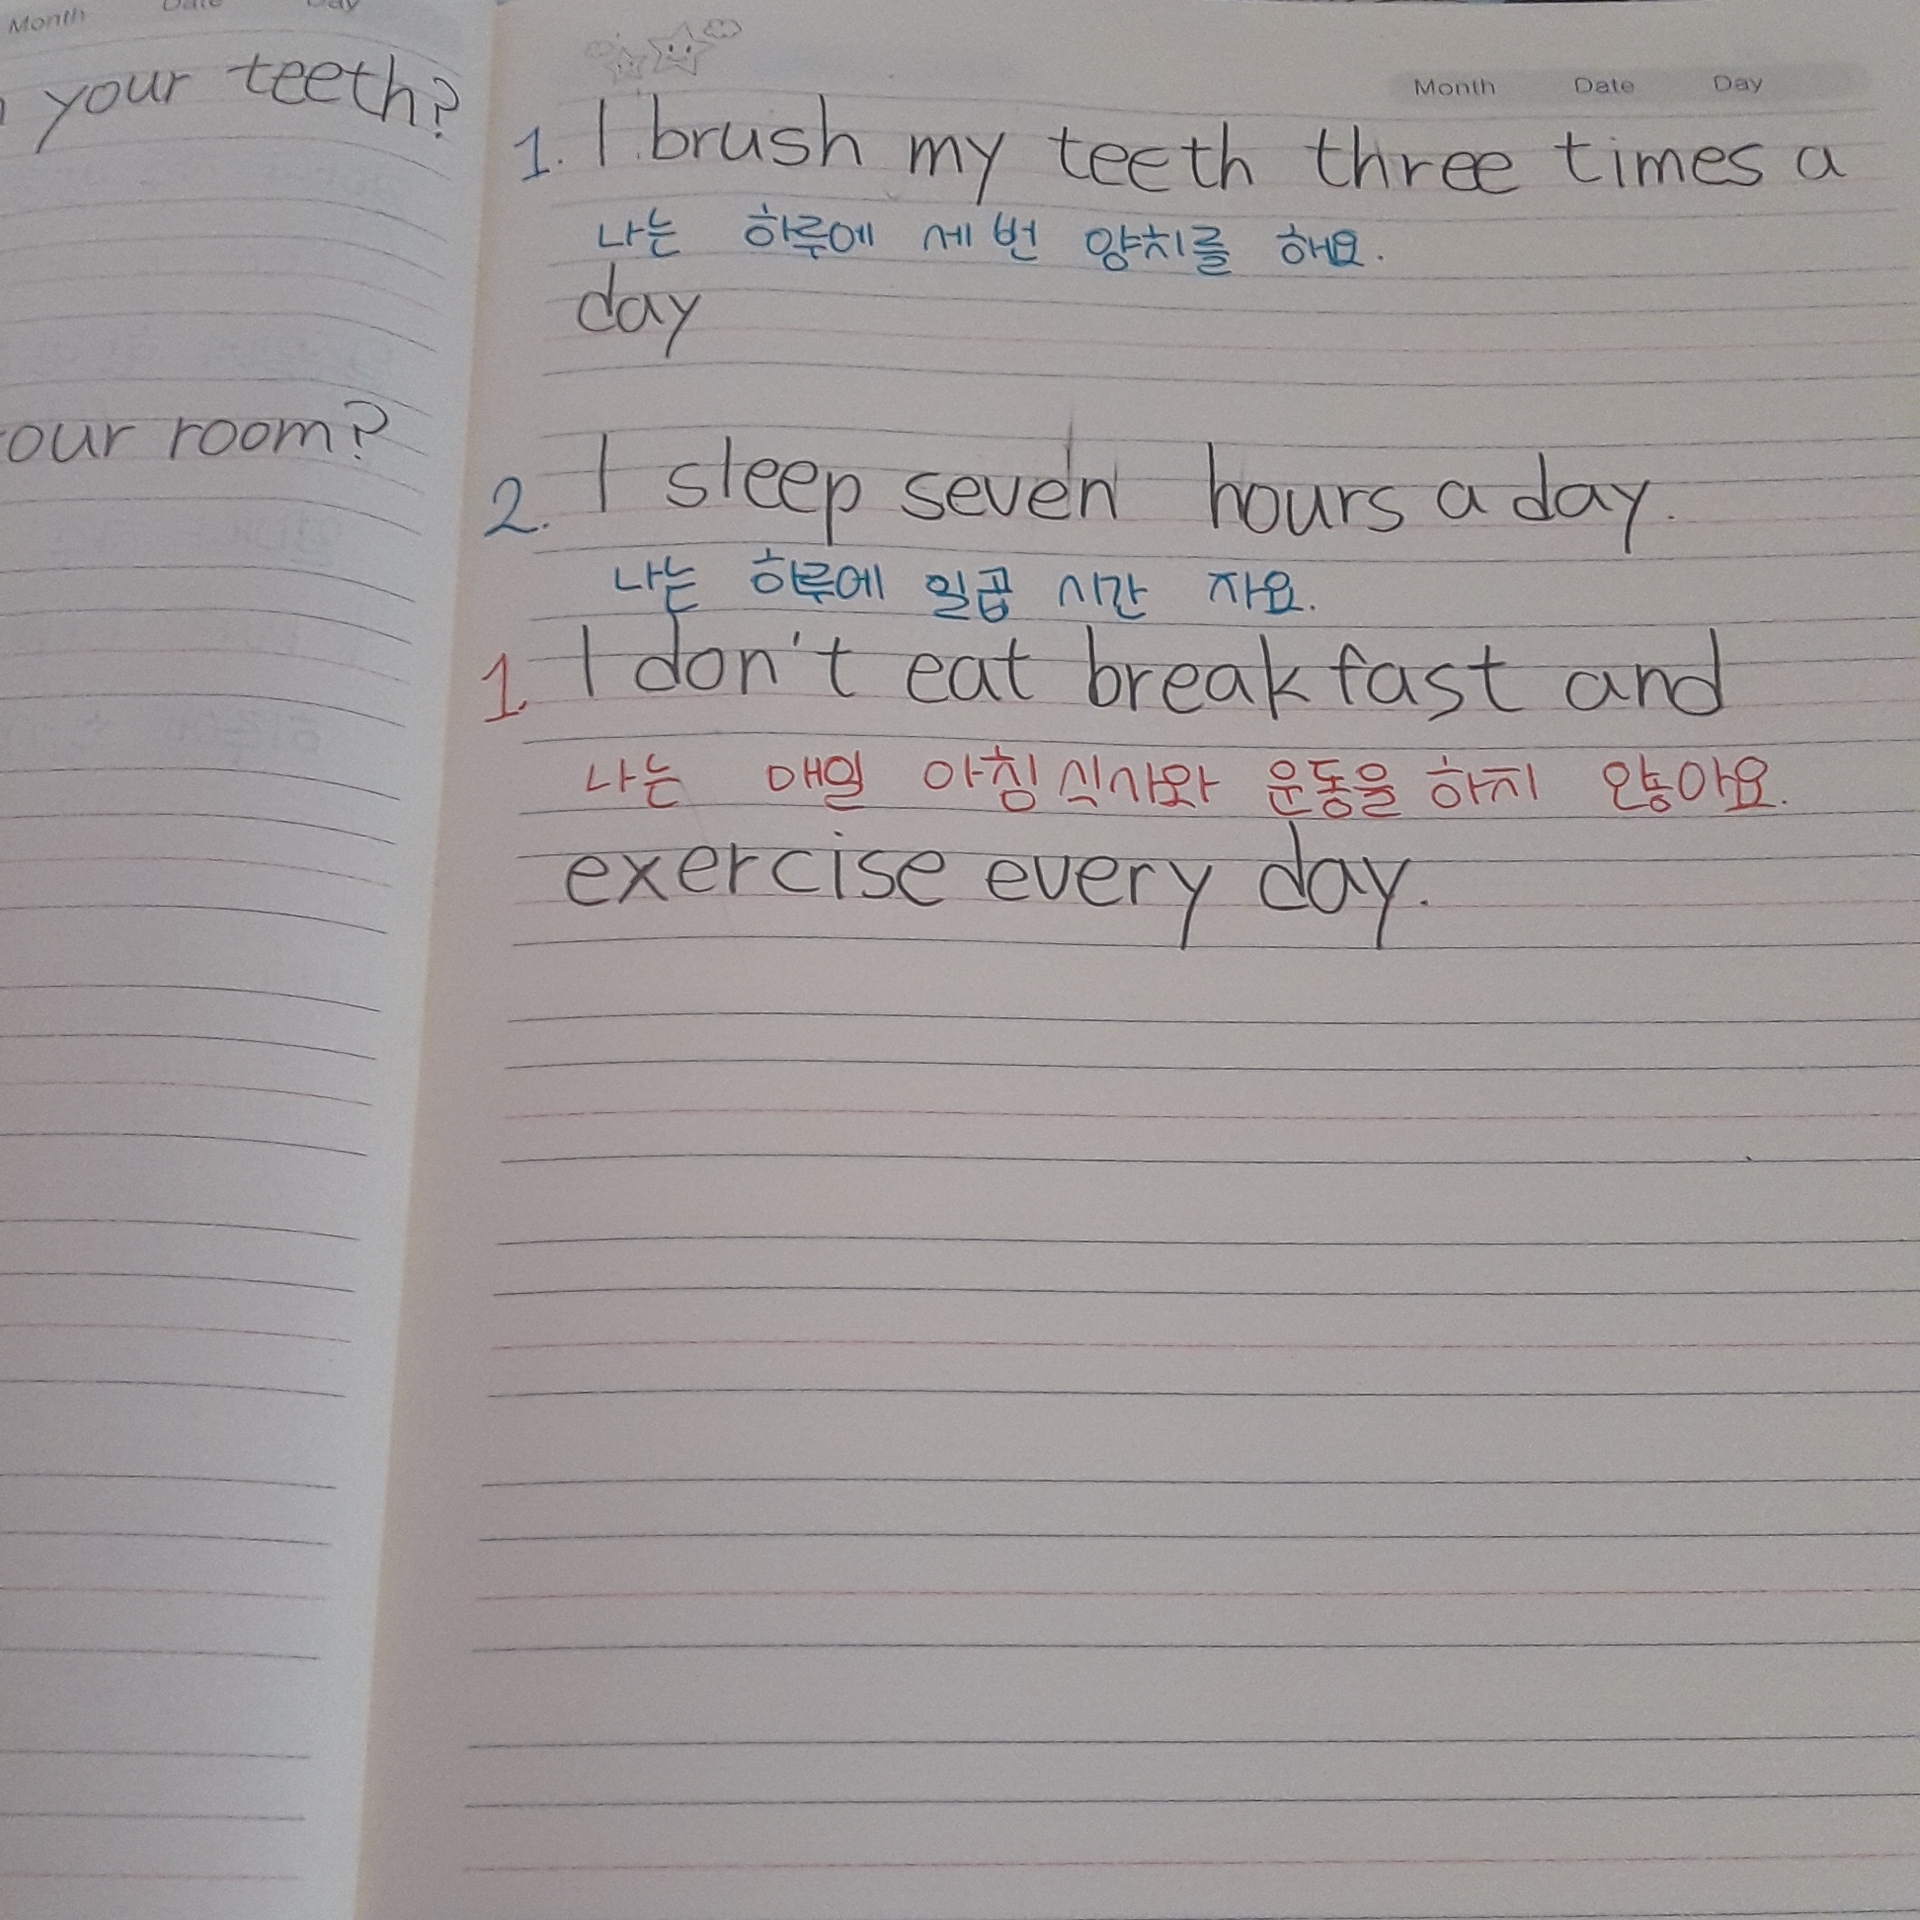 Month Date Day
your teeth?
our room?
Month Date Day
1. I brush my teeth three times a
나는 하루에 세 번 양치를 해요.
day
2. I sleep seven hours a day.
나는 하루에 일곱 시간 자요.
1. I don't eat breakfast and
나는 매일 아침식사와 운동을 하지 않아요.
exercise every day.